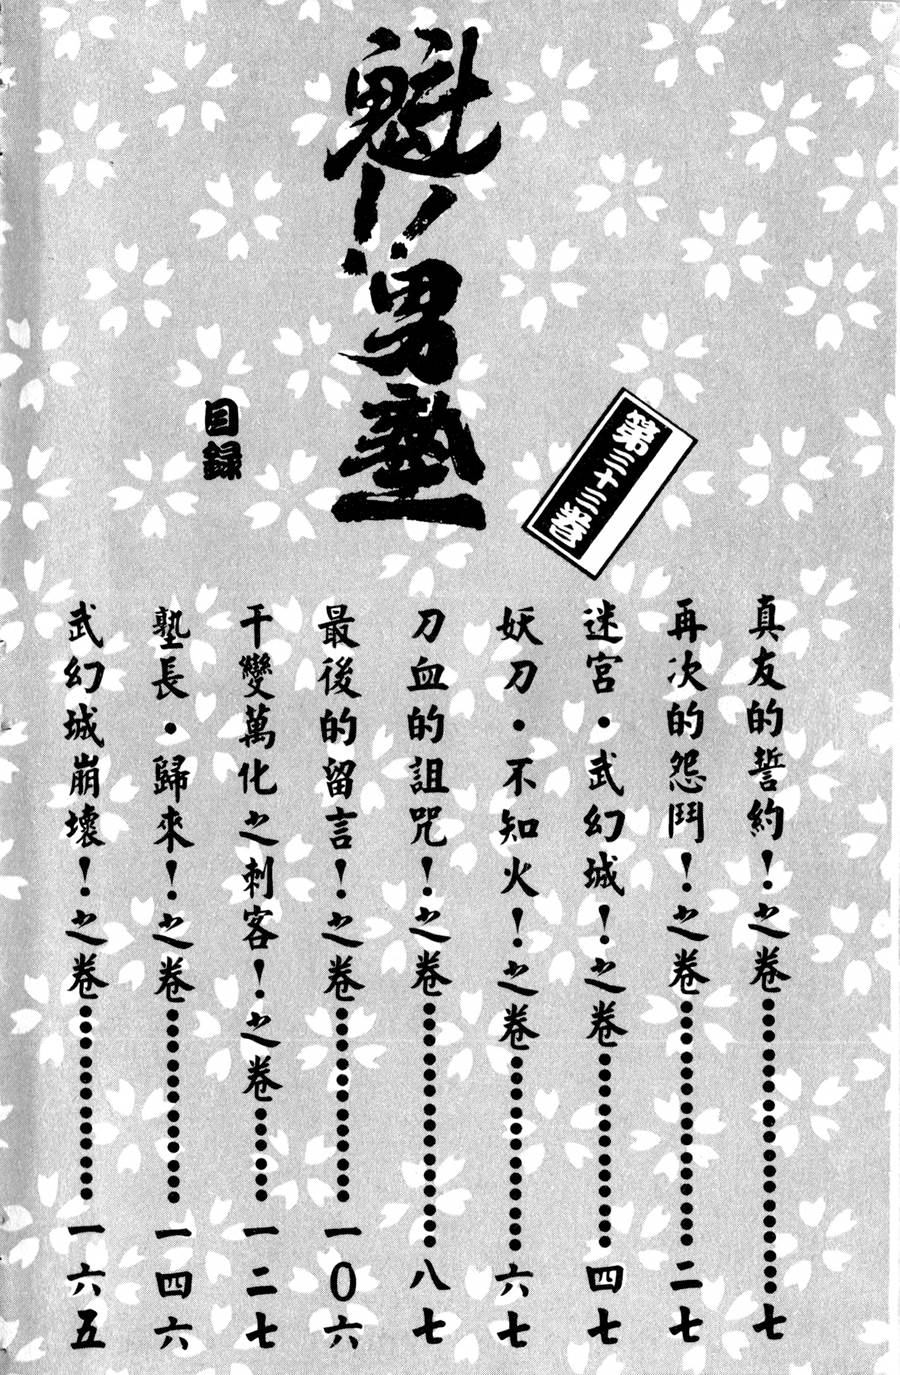 魁!!男塾
第三十三卷
目錄
真友的誓約！之卷……………七
再次的怨鬥！之卷……………二七
迷宮·武幻城！之卷……………四七
妖刀·不知火！之卷……………六七
刀血的詛咒！之卷……………八七
最後的留言！之卷……………一0六
干變萬化之刺客！之卷……………一二七
塾長·歸來！之卷……………一四六
武幻城崩壞！之卷……………一六五